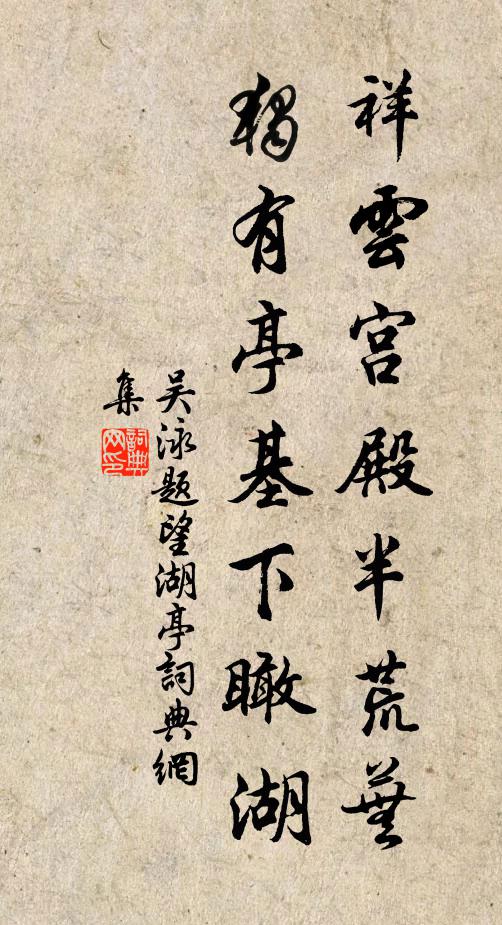 祥雲宮殿半荒蕪
獨有亭基下瞰湖
吴泳題望湖亭詞典網
集
詞典
网印